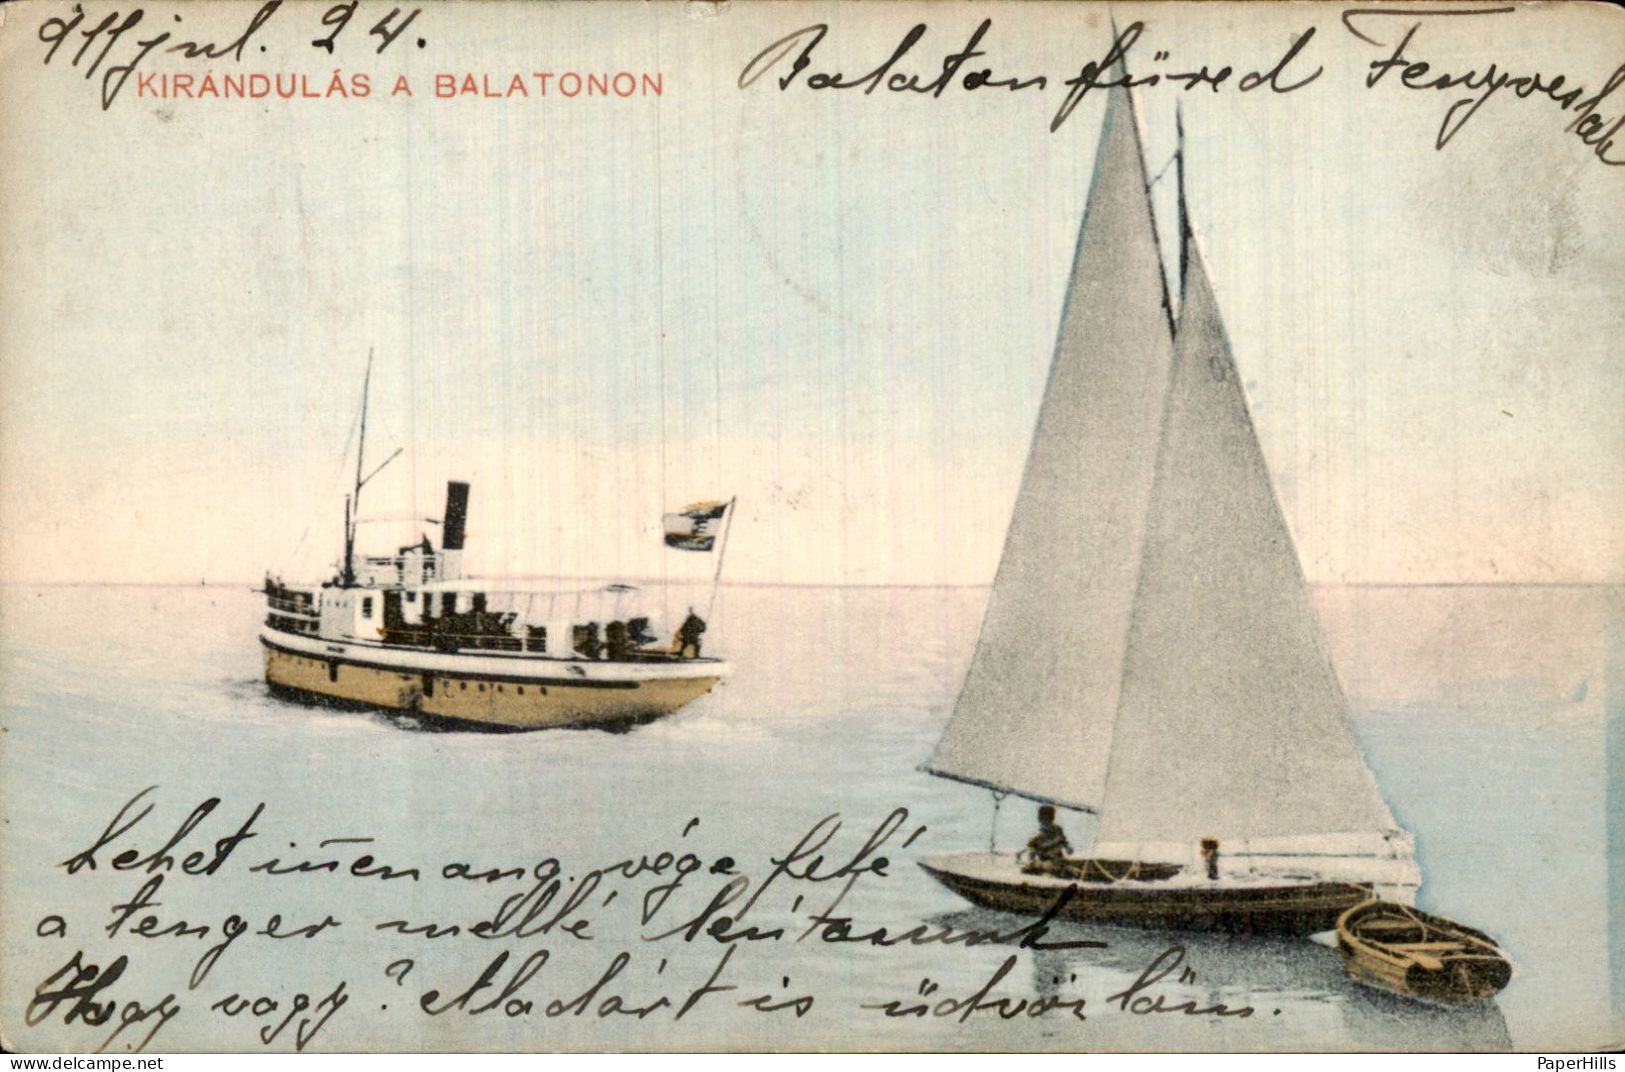 911 jul. 24.
KIRÁNDULÁS A BALATONON
Balatonfüred Fenyveslak
Lehet innen aug. vége felé
a tenger mellé leutazunk
Hogy vagy? Aladárt is üdvözlöm.
PaperHills